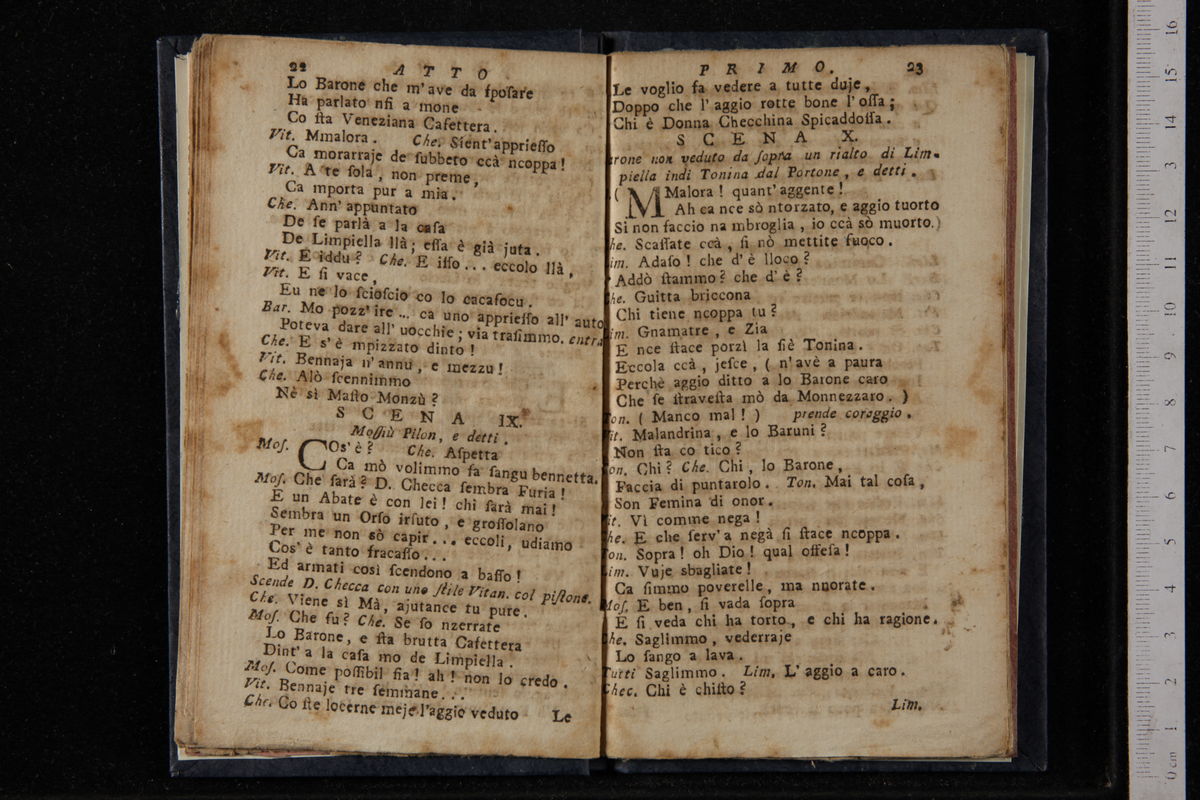 22 ATTO
Lo Barone che m'ave da ſpoſare
Ha parlato nſi a mone
Co ſta Veneziana Cafettera.
Vit. Mmalora. Che. Sient'apprieſſo
Ca morarraje de ſubbeto ccà ncoppa!
Vit. A te ſola, non preme,
Ca mporta pur a mia.
Che. Ann'appuntato
De ſe parlà a la caſa
De Limpiella llà; eſſa è già juta.
Vit. E iddu? Che. E iſſo... eccolo llà,
Vit. E ſi vace,
Eu ne lo ſcioſcio co lo cacafocu.
Bar. Mo pozz'ire... ca uno apprieſſo all'auto
Poteva dare all'uocchie; via traſimmo. entra
Che. E s'è mpizzato dinto!
Vit. Bennaja n'annu, e mezzu!
Che. Alò ſcennimmo
Nè sì Maſto Monzù?
SCENA IX.
Moſſiù Pilon, e detti.
Moſ. COs'è? Che. Aſpetta
Ca mò volimmo fa ſangu bennetta.
Moſ. Che ſarà? D. Checca ſembra Furia!
E un Abate è con lei! chi ſarà mai!
Sembra un Orſo irſuto, e groſſolano
Per me non sò capir... eccoli, udiamo
Cos'è tanto fracaſſo...
Ed armati così ſcendono a baſſo!
Scende D. Checca con uno ſtile Vitan. col piſtone.
Che. Viene sì Mà, ajutance tu pure.
Moſ. Che fu? Che. Se ſo nzerrate
Lo Barone, e ſta brutta Cafettera
Dint'a la caſa mo de Limpiella.
Moſ. Come poſſibil ſia! ah! non lo credo.
Vit. Bennaje tre ſemmane...
Che. Co ſte locerne meje l'aggio veduto
Le
PRIMO. 23
Le voglio fa vedere a tutte duje,
Doppo che l'aggio rotte bone l'oſſa;
Chi è Donna Checchina Spicaddoſſa.
SCENA X.
rone non veduto da ſopra un rialto di Lim-
piella indi Tonina dal Portone, e detti.
( MMalora! quant'aggente!
Ah ca nce sò ntorzato, e aggio tuorto
Si non faccio na mbroglia, io ccà sò muorto.)
he. Scaſſate ccà, ſi nò mettite fuoco.
im. Adaſo! che d'è lloco?
Addò ſtammo? che d'è?
he. Guitta briccona
Chi tiene ncoppa tu?
im. Gnamatre, e Zia
E nce ſtace porzì la ſiè Tonina.
Eccola ccà, jeſce, ( n'avè a paura
Perchè aggio ditto a lo Barone caro
Che ſe ſtraveſta mò da Monnezzaro. )
on. ( Manco mal! ) prende coraggio.
it. Malandrina, e lo Baruni?
Non ſta co tico?
on. Chi? Che. Chi, lo Barone,
Faccia di puntarolo. Ton. Mai tal coſa,
Son Femina di onor.
it. Vì comme nega!
he. E che ſerv'a negà ſi ſtace ncoppa.
on. Sopra! oh Dio! qual offeſa!
im. Vuje sbagliate!
Ca ſimmo poverelle, ma nnorate.
Moſ. E ben, ſi vada ſopra
E ſi veda chi ha torto, e chi ha ragione.
he. Saglimmo, vederraje
Lo ſango a lava.
Tutti Saglimmo. Lim. L'aggio a caro.
Chec. Chi è chiſto?
Lim.
16
15
14
13
12
11
10
9
8
7
6
5
4
3
2
1
0 cm